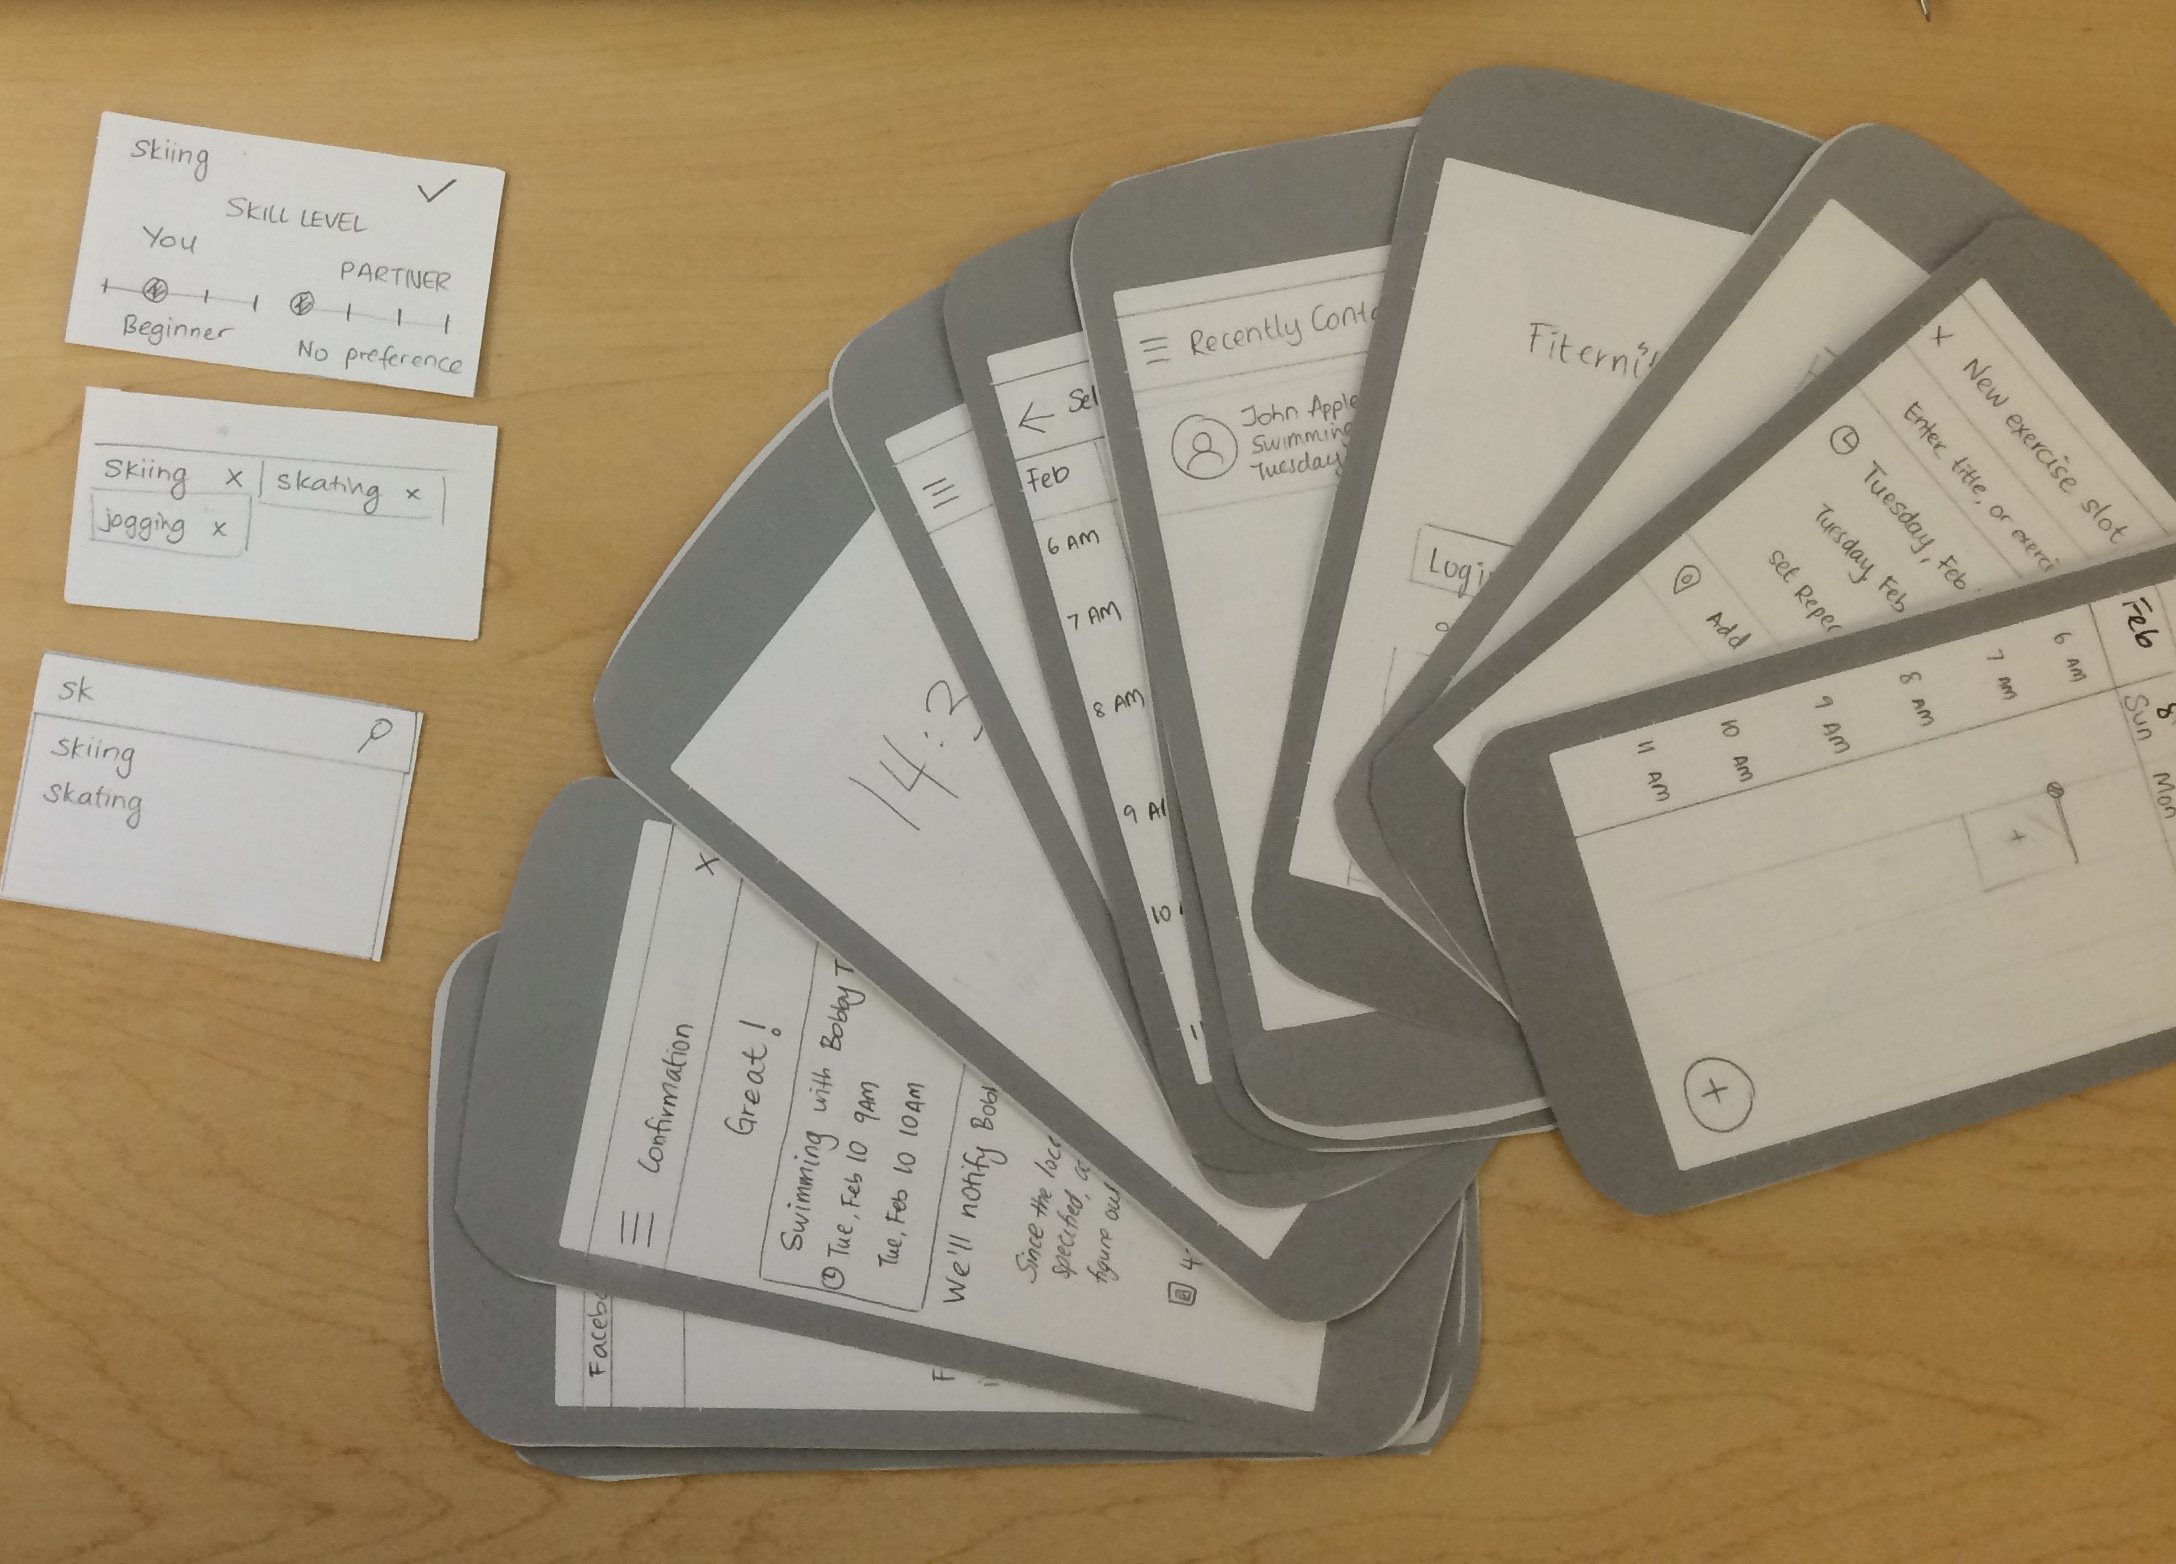 Skiing
SKILL LEVEL
You
PARTNER
Beginner
No preference
Skiing x
skating x
jogging x
sk
skiing
skating
Facebo
Confirmation
x
Great!
Swimming with Bobby T
Tue, Feb 10 9AM
Tue, Feb 10 10AM
We'll notify Bob
Since the loca
specified,
figure out
14:3
Sel
Feb
6 AM
7 AM
8 AM
9 A
10
Recently Conta
John Apple
Swimming
Tuesday
Fiterni
Logi
x New exercise slot
Enter title, or exerci
Tuesday, Feb
Tuesday, Feb
Set Repe
Add
Feb
8
Sun
Mon
6 AM
7 AM
8 AM
9 AM
10 AM
11 AM
+
+